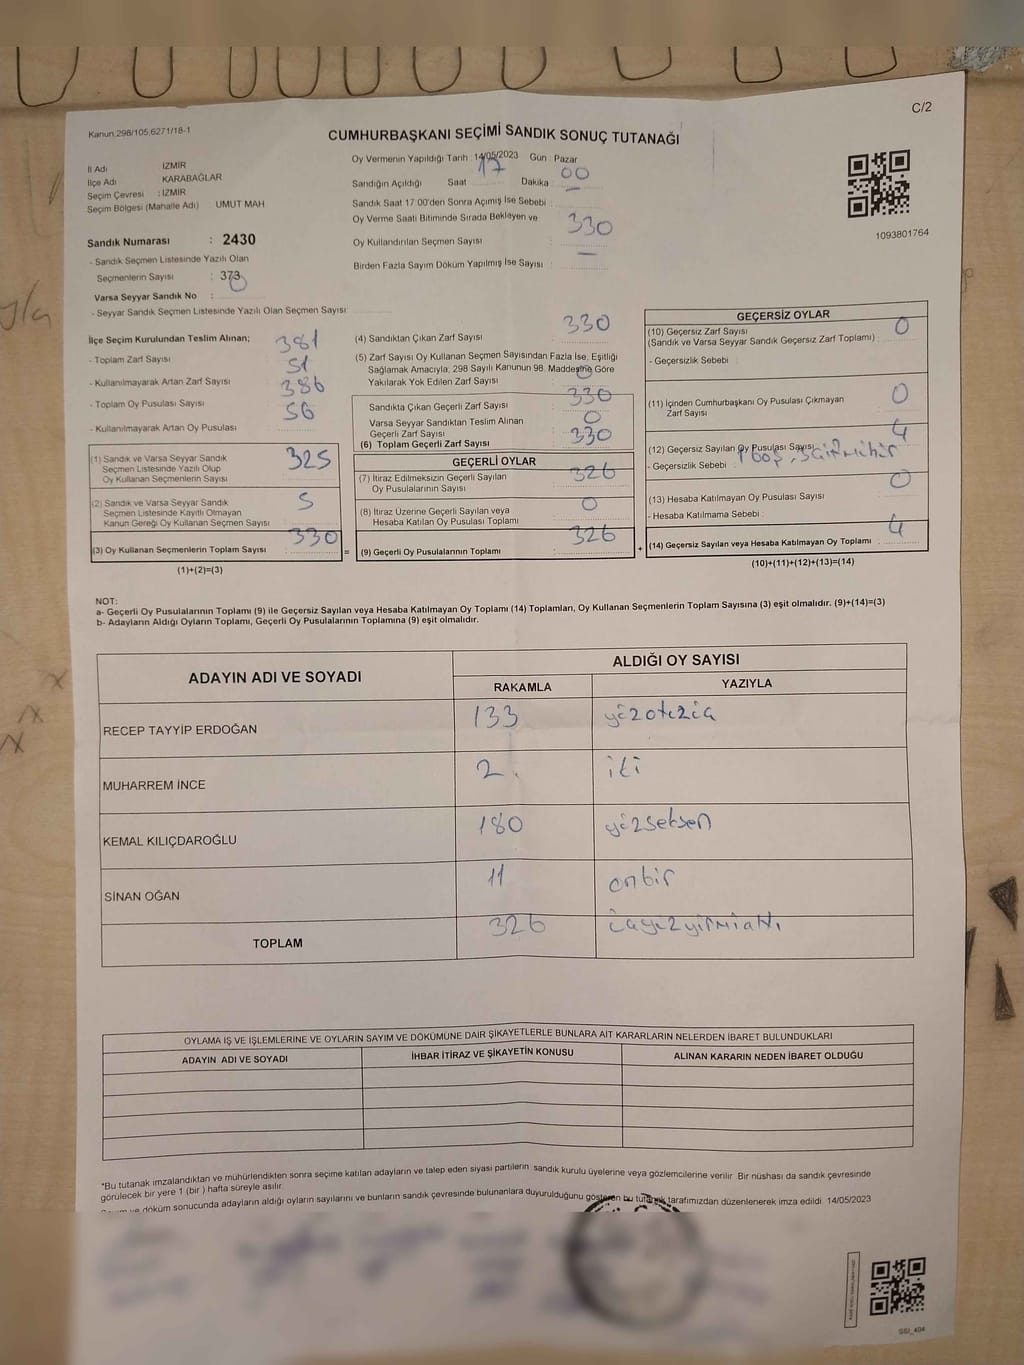 C/2
Kanun 298/105;6271/18-1
CUMHURBAŞKANI SEÇİMİ SANDIK SONUÇ TUTANAĞI
İl Adı İZMİR
İlçe Adı KARABAĞLAR
Seçim Çevresi : İZMİR
Seçim Bölgesi (Mahalle Adı) UMUT MAH
Sandık Numarası : 2430
- Sandık Seçmen Listesinde Yazılı Olan
Seçmenlerin Sayısı : 373
Varsa Seyyar Sandık No : 0
- Seyyar Sandık Seçmen Listesinde Yazılı Olan Seçmen Sayısı
Oy Vermenin Yapıldığı Tarih : 14/05/2023 Gün : Pazar
Sandığın Açıldığı Saat 17 Dakika 00
Sandık Saat 17:00'den Sonra Açımış İse Sebebi : —
Oy Verme Saati Bitiminde Sırada Bekleyen ve
Oy Kullandırılan Seçmen Sayısı 330
Birden Fazla Sayım Döküm Yapılmış İse Sayısı : —
1093801764
İlçe Seçim Kurulundan Teslim Alınan;
- Toplam Zarf Sayısı 381
- Kullanılmayarak Artan Zarf Sayısı 51
- Toplam Oy Pusulası Sayısı 386
- Kullanılmayarak Artan Oy Pusulası 56
(1) Sandık ve Varsa Seyyar Sandık
Seçmen Listesinde Yazılı Olup
Oy Kullanan Seçmenlerin Sayısı 325
(2) Sandık ve Varsa Seyyar Sandık
Seçmen Listesinde Kayıtlı Olmayan
Kanun Gereği Oy Kullanan Seçmen Sayısı 5
(3) Oy Kullanan Seçmenlerin Toplam Sayısı 330 =
(1)+(2)=(3)
(4) Sandıktan Çıkan Zarf Sayısı 330
(5) Zarf Sayısı Oy Kullanan Seçmen Sayısından Fazla İse, Eşitliği
Sağlamak Amacıyla, 298 Sayılı Kanunun 98. Maddesine Göre
Yakılarak Yok Edilen Zarf Sayısı 0
Sandıkta Çıkan Geçerli Zarf Sayısı 330
Varsa Seyyar Sandıktan Teslim Alınan
Geçerli Zarf Sayısı 0
(6) Toplam Geçerli Zarf Sayısı 330
GEÇERLİ OYLAR
(7) İtiraz Edilmeksizin Geçerli Sayılan
Oy Pusulalarının Sayısı 326
(8) İtiraz Üzerine Geçerli Sayılan veya
Hesaba Katılan Oy Pusulası Toplamı 0
(9) Geçerli Oy Pusulalarının Toplamı 326 +
GEÇERSİZ OYLAR
(10) Geçersiz Zarf Sayısı 0
(Sandık ve Varsa Seyyar Sandık Geçersiz Zarf Toplamı) :
- Geçersizlik Sebebi :
(11) İçinden Cumhurbaşkanı Oy Pusulası Çıkmayan
Zarf Sayısı 0
(12) Geçersiz Sayılan Oy Pusulası Sayısı 4
- Geçersizlik Sebebi : 1 boş,
(13) Hesaba Katılmayan Oy Pusulası Sayısı 0
- Hesaba Katılmama Sebebi :
(14) Geçersiz Sayılan veya Hesaba Katılmayan Oy Toplamı : 4
(10)+(11)+(12)+(13)=(14)
NOT:
a- Geçerli Oy Pusulalarının Toplamı (9) ile Geçersiz Sayılan veya Hesaba Katılmayan Oy Toplamı (14) Toplamları, Oy Kullanan Seçmenlerin Toplam Sayısına (3) eşit olmalıdır. (9)+(14)=(3)
b- Adayların Aldığı Oyların Toplamı, Geçerli Oy Pusulalarının Toplamına (9) eşit olmalıdır.
ADAYIN ADI VE SOYADI ALDIĞI OY SAYISI
RAKAMLA YAZIYLA
RECEP TAYYİP ERDOĞAN 133 yüzotuzüç
MUHARREM İNCE 2 iki
KEMAL KILIÇDAROĞLU 180 yüzseksen
SİNAN OĞAN 11 onbir
TOPLAM 326 üçyüzyirmialtı
OYLAMA İŞ VE İŞLEMLERİNE VE OYLARIN SAYIM VE DÖKÜMÜNE DAİR ŞİKAYETLERLE BUNLARA AİT KARARLARIN NELERDEN İBARET BULUNDUKLARI
ADAYIN ADI VE SOYADI İHBAR İTİRAZ VE ŞİKAYETİN KONUSU ALINAN KARARIN NEDEN İBARET OLDUĞU
*Bu tutanak imzalandıktan ve mühürlendikten sonra seçime katılan adayların ve talep eden siyasi partilerin sandık kurulu üyelerine veya gözlemcilerine verilir. Bir nüshası da sandık çevresinde
görülecek bir yere 1 (bir ) hafta süreyle asılır.
ve döküm sonucunda adayların aldığı oyların sayılarını ve bunların sandık çevresinde bulunanlara duyurulduğunu gösteren bu tutanak tarafımızdan düzenlenerek imza edildi. 14/05/2023
SSI_404